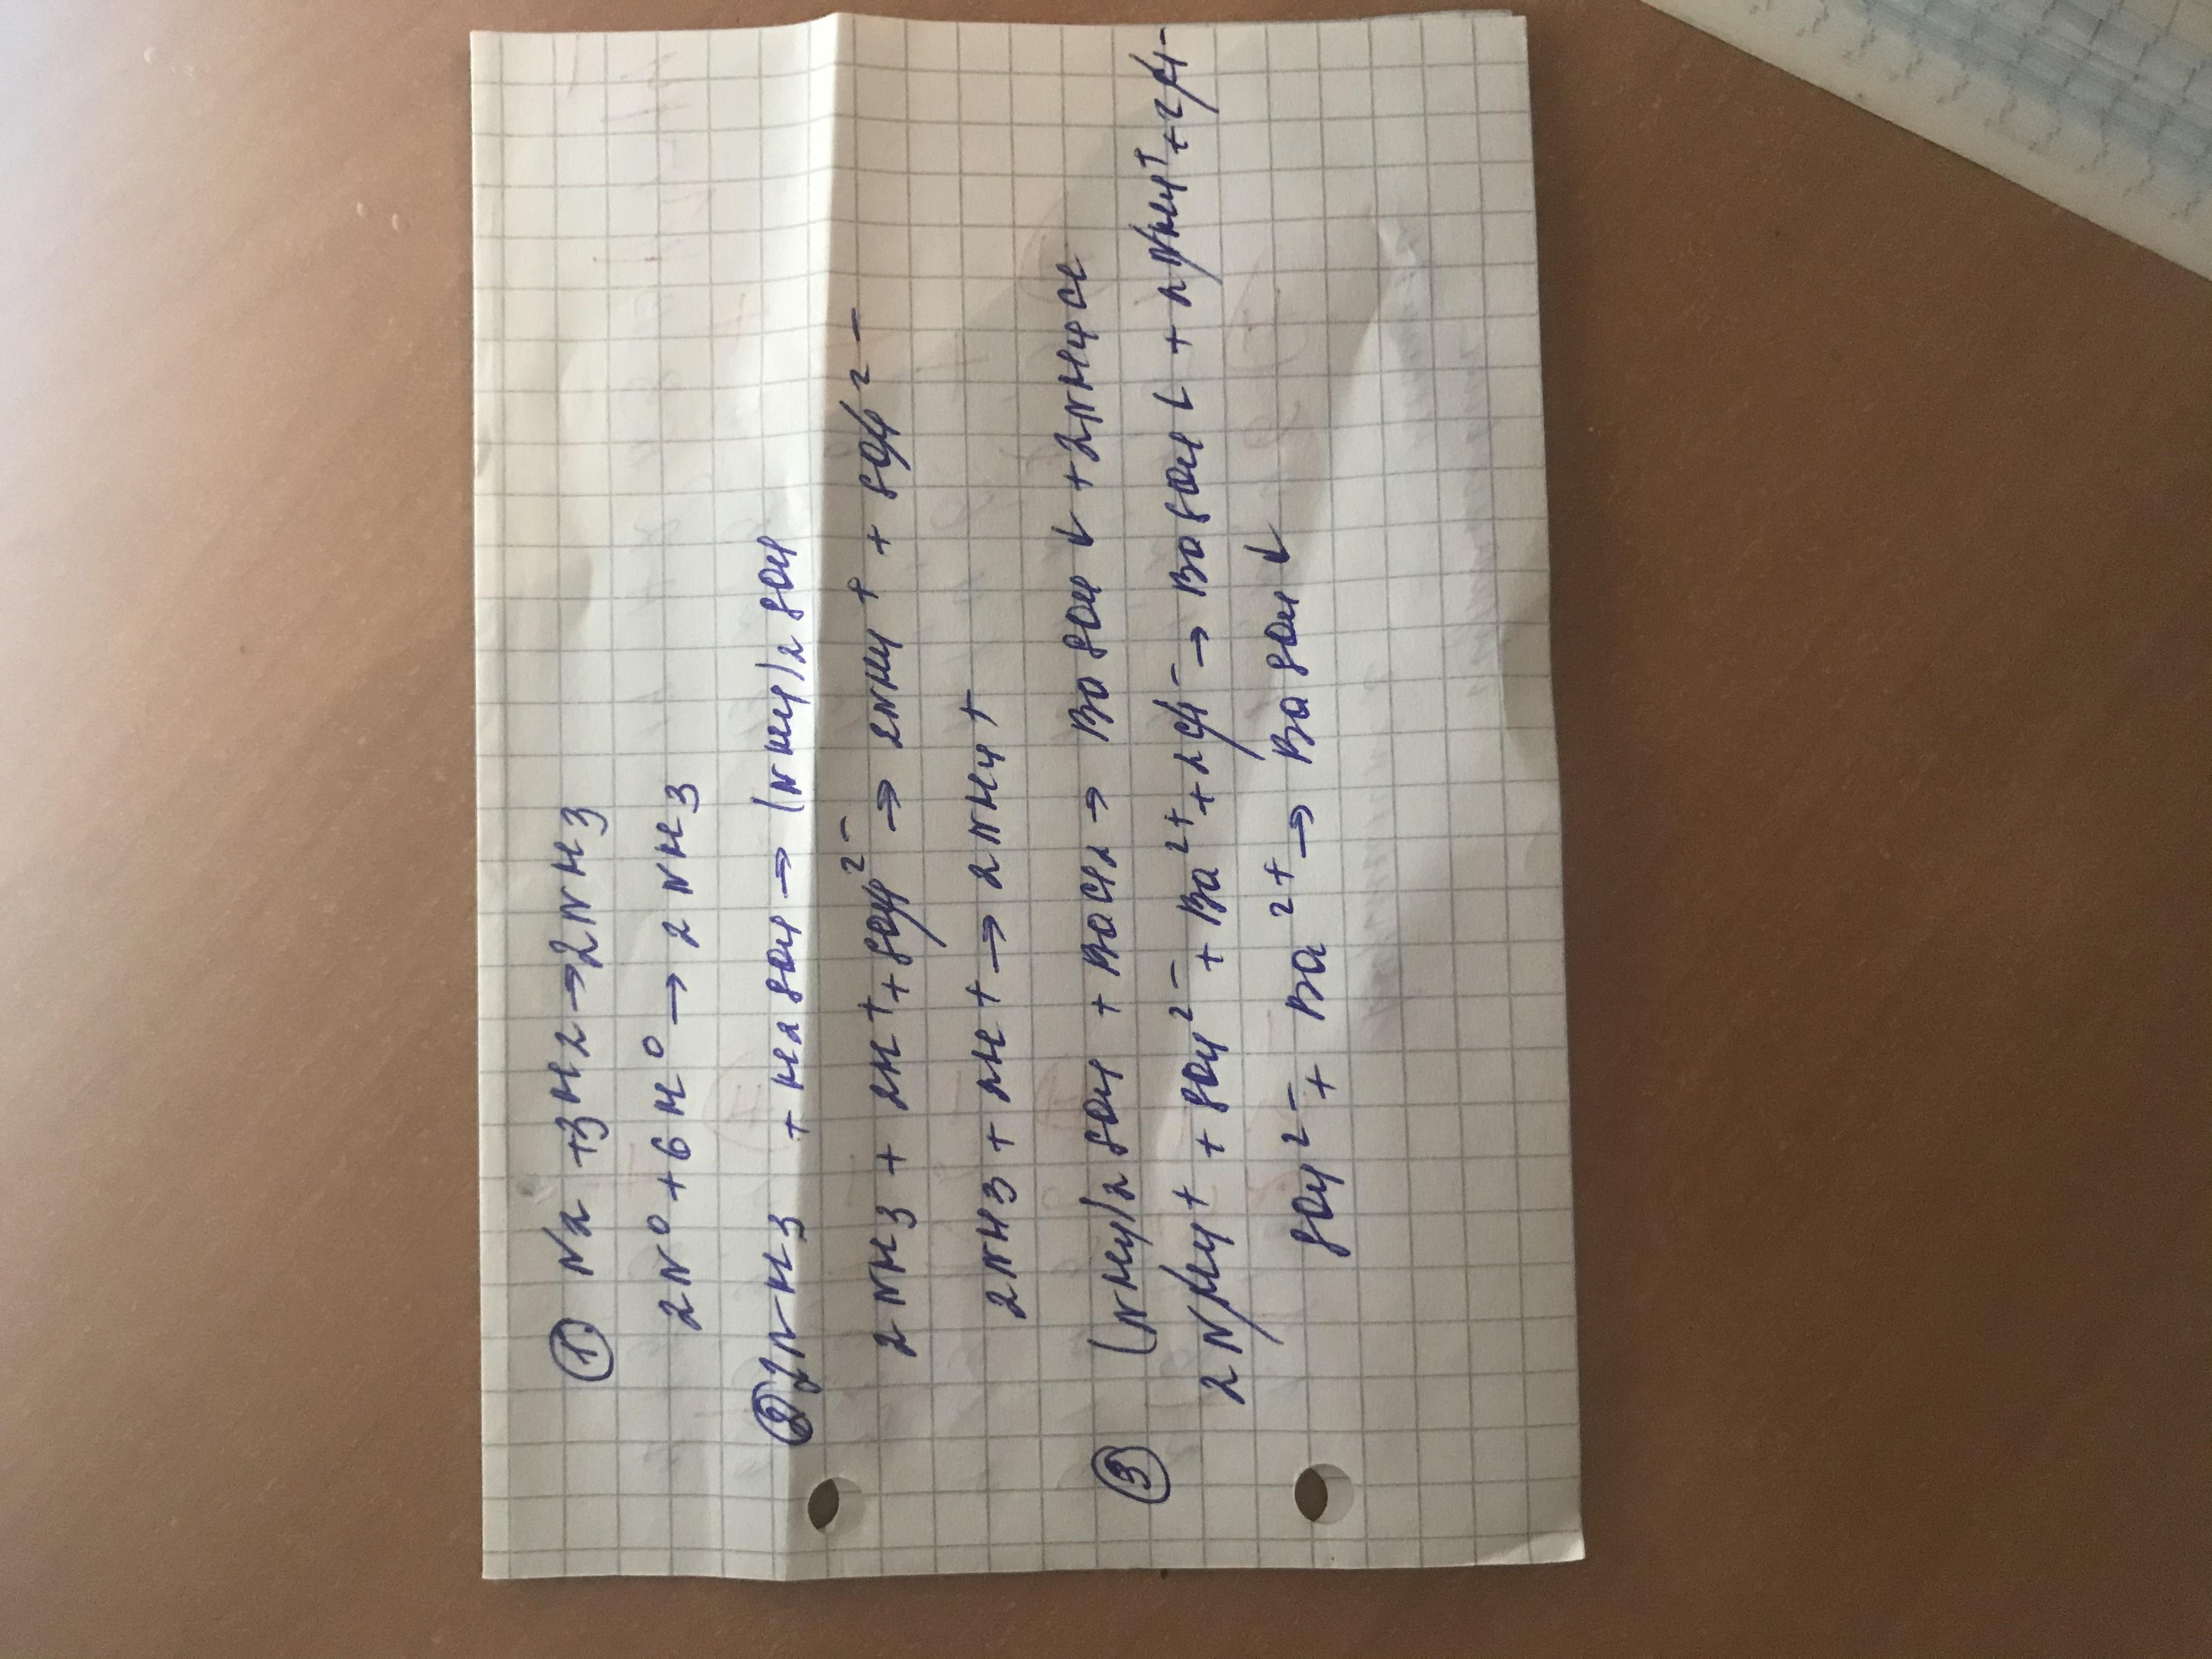 ① N2 + 3H2 → 2NH3
2N⁰ + 6H⁰ → 2NH3
② 2NH3 + H2SO4 → (NH4)2SO4
2NH3 + 2H⁺ + SO4²⁻ → 2NH4⁺ + SO4²⁻
2NH3 + 2H⁺ → 2NH4⁺
③ (NH4)2SO4 + BaCl2 → BaSO4↓ + 2NH4Cl
2NH4⁺ + SO4²⁻ + Ba²⁺ + 2Cl⁻ → BaSO4↓ + 2NH4⁺ + 2Cl⁻
SO4²⁻ + Ba²⁺ → BaSO4↓